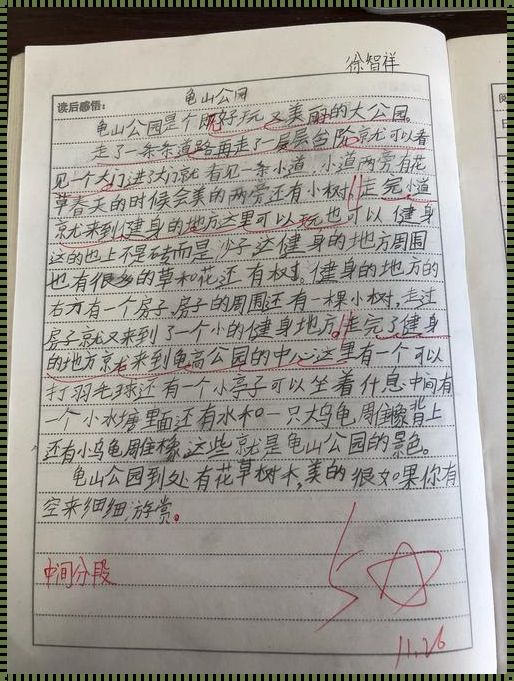 徐智祥
读后感悟：
龟山公园
龟山公园是个既好玩又美丽的大公园。
走了一条条道路再走了一层层台阶就可以看
见一个大门进了大门就看见一条小道，小道两旁有花
草春天的时候会美的两旁还有小树。走完小道
就来到健身的地方这里可以玩也可以健身
这的也上不是砖而是沙子这健身的地方周围
也有很多的草和花还有树。健身的地方的
右方有一个房子，房子的周围还有一棵小树，走过
房子就又来到了一个小的健身地方。走完了健身
的地方就来到龟高公园的中心这里有一个可以
打羽毛球还有一个小亭子可以坐着休息中间有
一个小水塘里面还有水和一只大乌龟 背上
还有小乌龟 这些就是龟山公园的景色。
龟山公园到处有花草树木，美的很如果你有
空来细细游赏。
中间分段
11.26